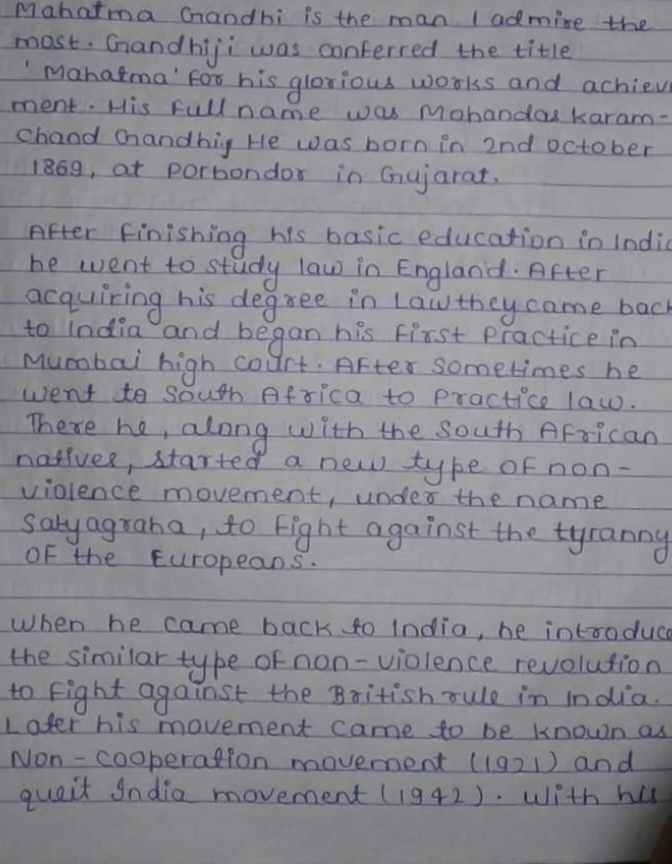 Mahatma Gandhi is the man I admire the
most. Gandhiji was conferred the title
'Mahatma' for his glorious works and achieve
ment. His full name was Mohandas Karam-
chand Gandhiy He was born in 2nd october
1869, at porbondor in Gujarat.
After finishing his basic education in India
he went to study law in England. After
acquiring his degree in law they came back
to India and began his first practice in
Mumbai high court. After sometimes he
went to South Africa to practice law.
There he, along with the South African
natives, started a new type of non-
violence movement, under the name
Satyagraha, to fight against the tyranny
of the Europeans.
When he came back to India, he introduce
the similar type of non-violence revolution
to fight against the British rule in India.
Later his movement came to be known as
Non-cooperation movement (1921) and
queit India movement (1942). With his